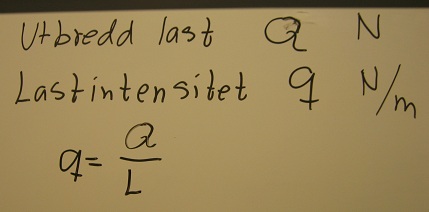 Utbredd last Q N
Lastintensitet q N/m
q = Q/L